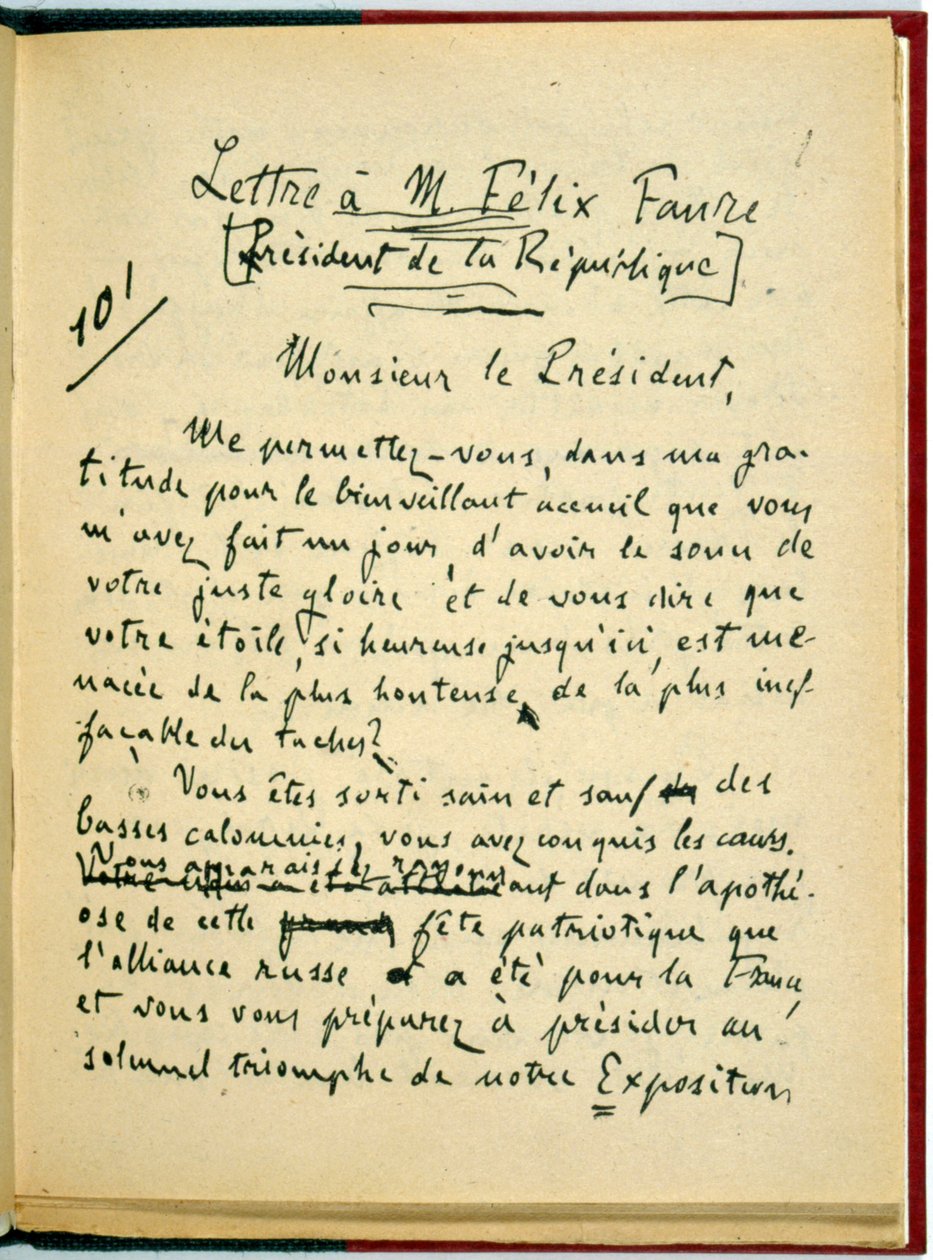 1
Lettre à M. Félix Faure
[Président de la République]
10'
Monsieur le Président,
Me permettez-vous, dans ma gra-
titude pour le bienveillant accueil que vous
m'avez fait un jour, d'avoir le souci de
votre juste gloire et de vous dire que
votre étoile, si heureuse jusqu'ici, est me-
nacée de la plus honteuse, de la plus inef-
façable des taches?
Vous êtes sorti sain et sauf des
basses calomnies, vous avez conquis les cœurs.
Vous apparaissez rayonn
ant dans l'apothé-
ose de cette fête patriotique que
l'alliance russe a été pour la France,
et vous vous préparez à présider au
solennel triomphe de notre Exposition